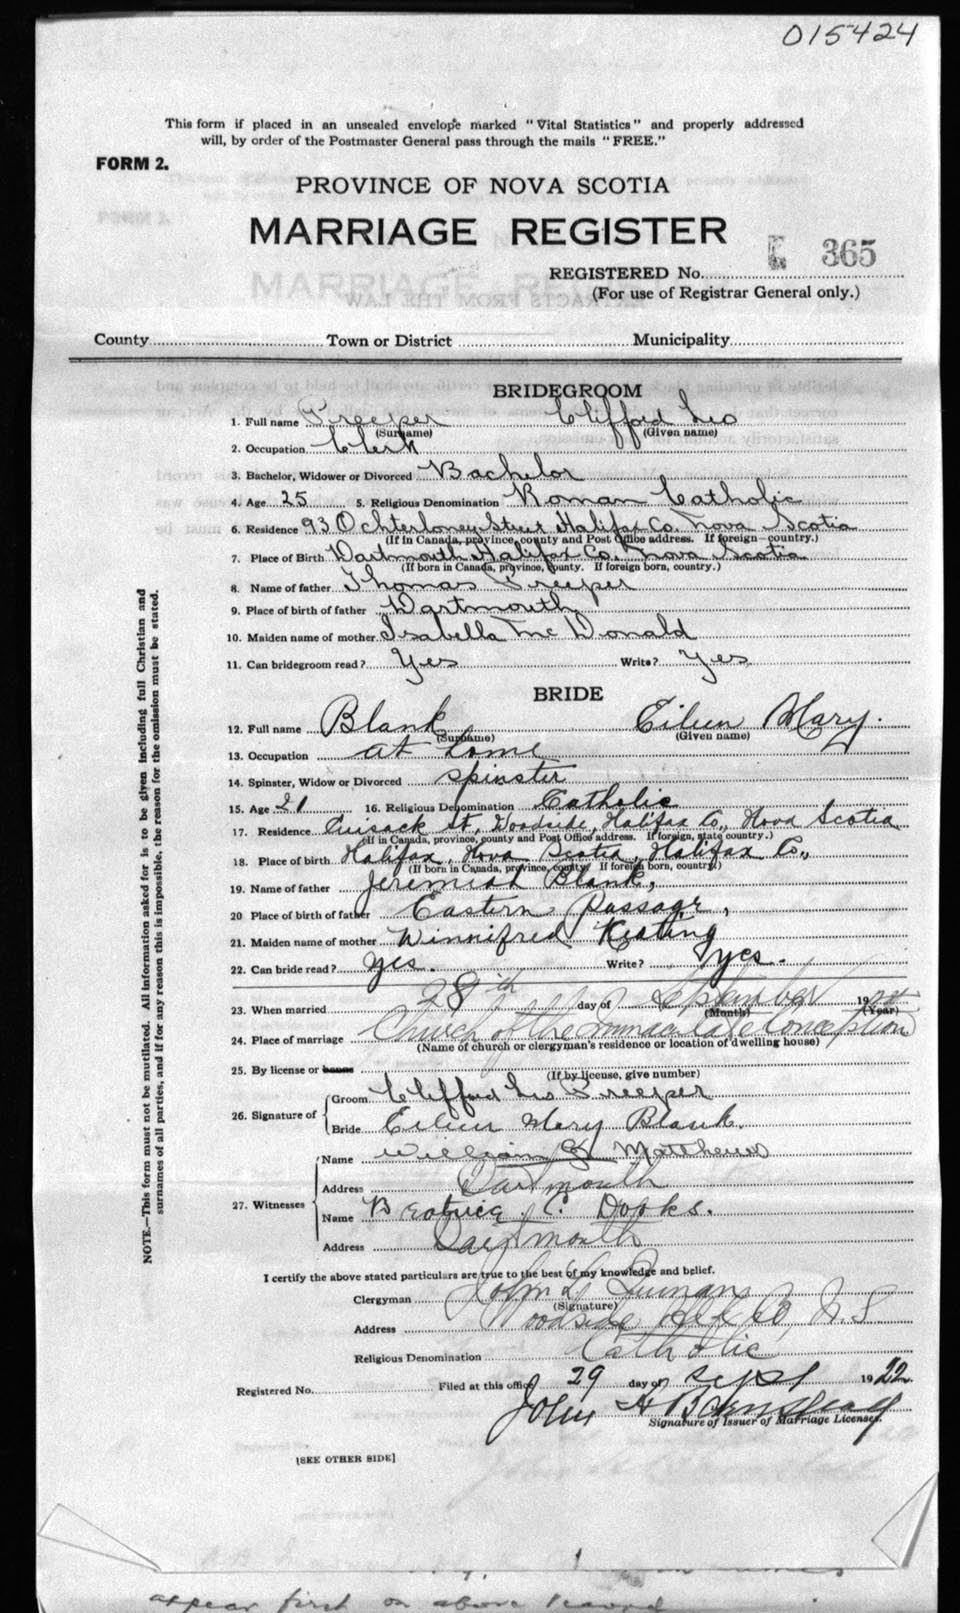 015424
This form if placed in an unsealed envelope marked "Vital Statistics" and properly addressed
will, by order of the Postmaster General pass through the mails "FREE."
FORM 2.
PROVINCE OF NOVA SCOTIA
MARRIAGE REGISTER
REGISTERED No. 365
(For use of Registrar General only.)
County Town or District Municipality
BRIDEGROOM
1. Full name Preeper Clifford Leo
(Surname) (Given name)
2. Occupation Clerk
3. Bachelor, Widower or Divorced Bachelor
4. Age 25 5. Religious Denomination Roman Catholic
6. Residence 93 Ochterloney Street Halifax Co. Nova Scotia
(If in Canada, province, county and Post Office address. If foreign—country.)
7. Place of Birth Dartmouth Halifax Co. Nova Scotia
(If born in Canada, province, county. If foreign born, country.)
8. Name of father Thomas Preeper
9. Place of birth of father Dartmouth
10. Maiden name of mother Isabella McDonald
11. Can bridegroom read? Yes Write? Yes
BRIDE
12. Full name Blank Eileen Mary.
(Surname) (Given name)
13. Occupation at home
14. Spinster, Widow or Divorced spinster
15. Age 21 16. Religious Denomination Catholic
17. Residence Cuisack St, Woodside, Halifax Co., Nova Scotia
(If in Canada, province, county and Post Office address. If foreign, state country.)
18. Place of birth Halifax, Nova Scotia, Halifax Co.,
(If born in Canada, province, county. If foreign born, country)
19. Name of father Jeremiah Blank,
20 Place of birth of father Eastern Passage,
21. Maiden name of mother Winnifred Keating
22. Can bride read? yes. Write? yes.
23. When married 28th day of September 1922
(Month) (Year)
24. Place of marriage Church of the Immaculate Conception
(Name of church or clergyman's residence or location of dwelling house)
25. By license or banns
(If by license, give number)
26. Signature of
Groom Clifford Leo Preeper
Bride Eileen Mary Blank.
27. Witnesses
Name William Matthews
Address Dartmouth
Name Beatrice C. Dooks.
Address Dartmouth
I certify the above stated particulars are true to the best of my knowledge and belief.
Clergyman John
(Signature)
Address Woodside Hfx Co, N.S
Religious Denomination Catholic
Registered No. Filed at this office 29 day of Sept 1922.
John H
Signature of Issuer of Marriage Licenses.
[SEE OTHER SIDE]
NOTE.—This form must not be mutilated. All information asked for is to be given including full Christian and
surnames of all parties, and if for any reason this is impossible, the reason for the omission must be stated.
appear first on above record